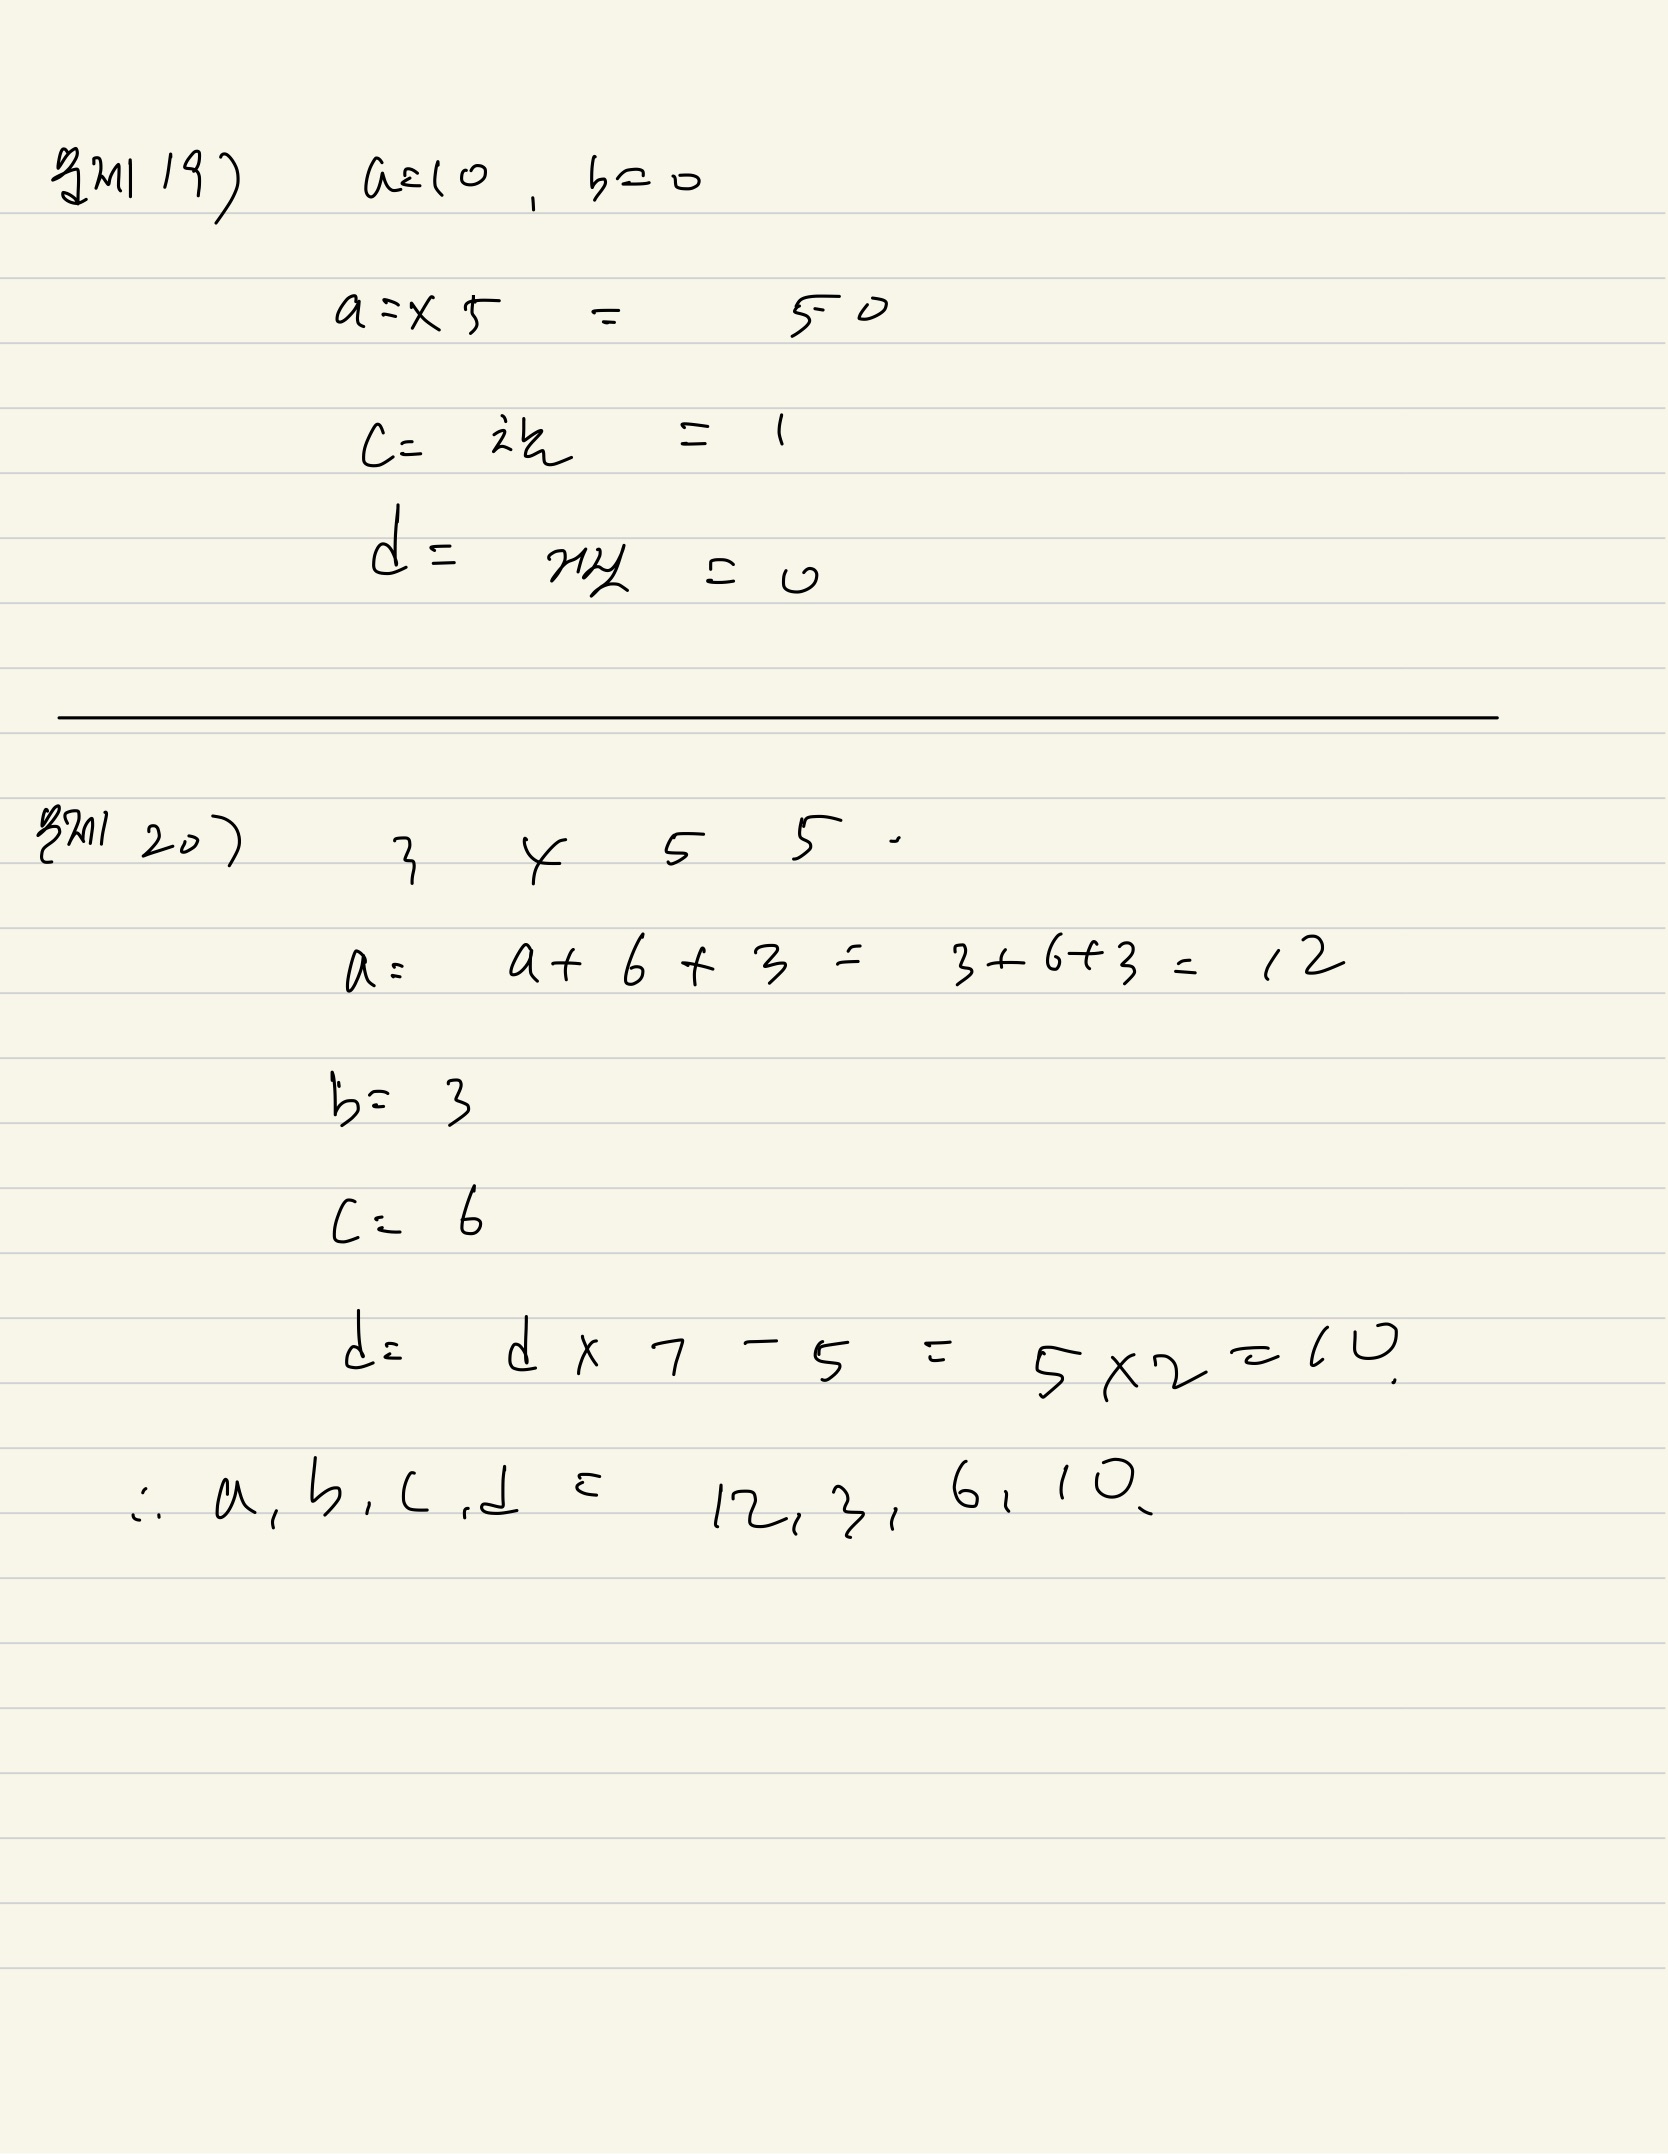 문제 19) a=10, b=0
a=x5 = 50
c= 참 = 1
d= 거짓 = 0
문제 20) 3 4 5 5.
a= a+6+3 = 3+6+3 = 12
b= 3
c= 6
d= d x 7 - 5 = 5x2 = 10.
∴ a, b, c, d = 12, 3, 6, 10.